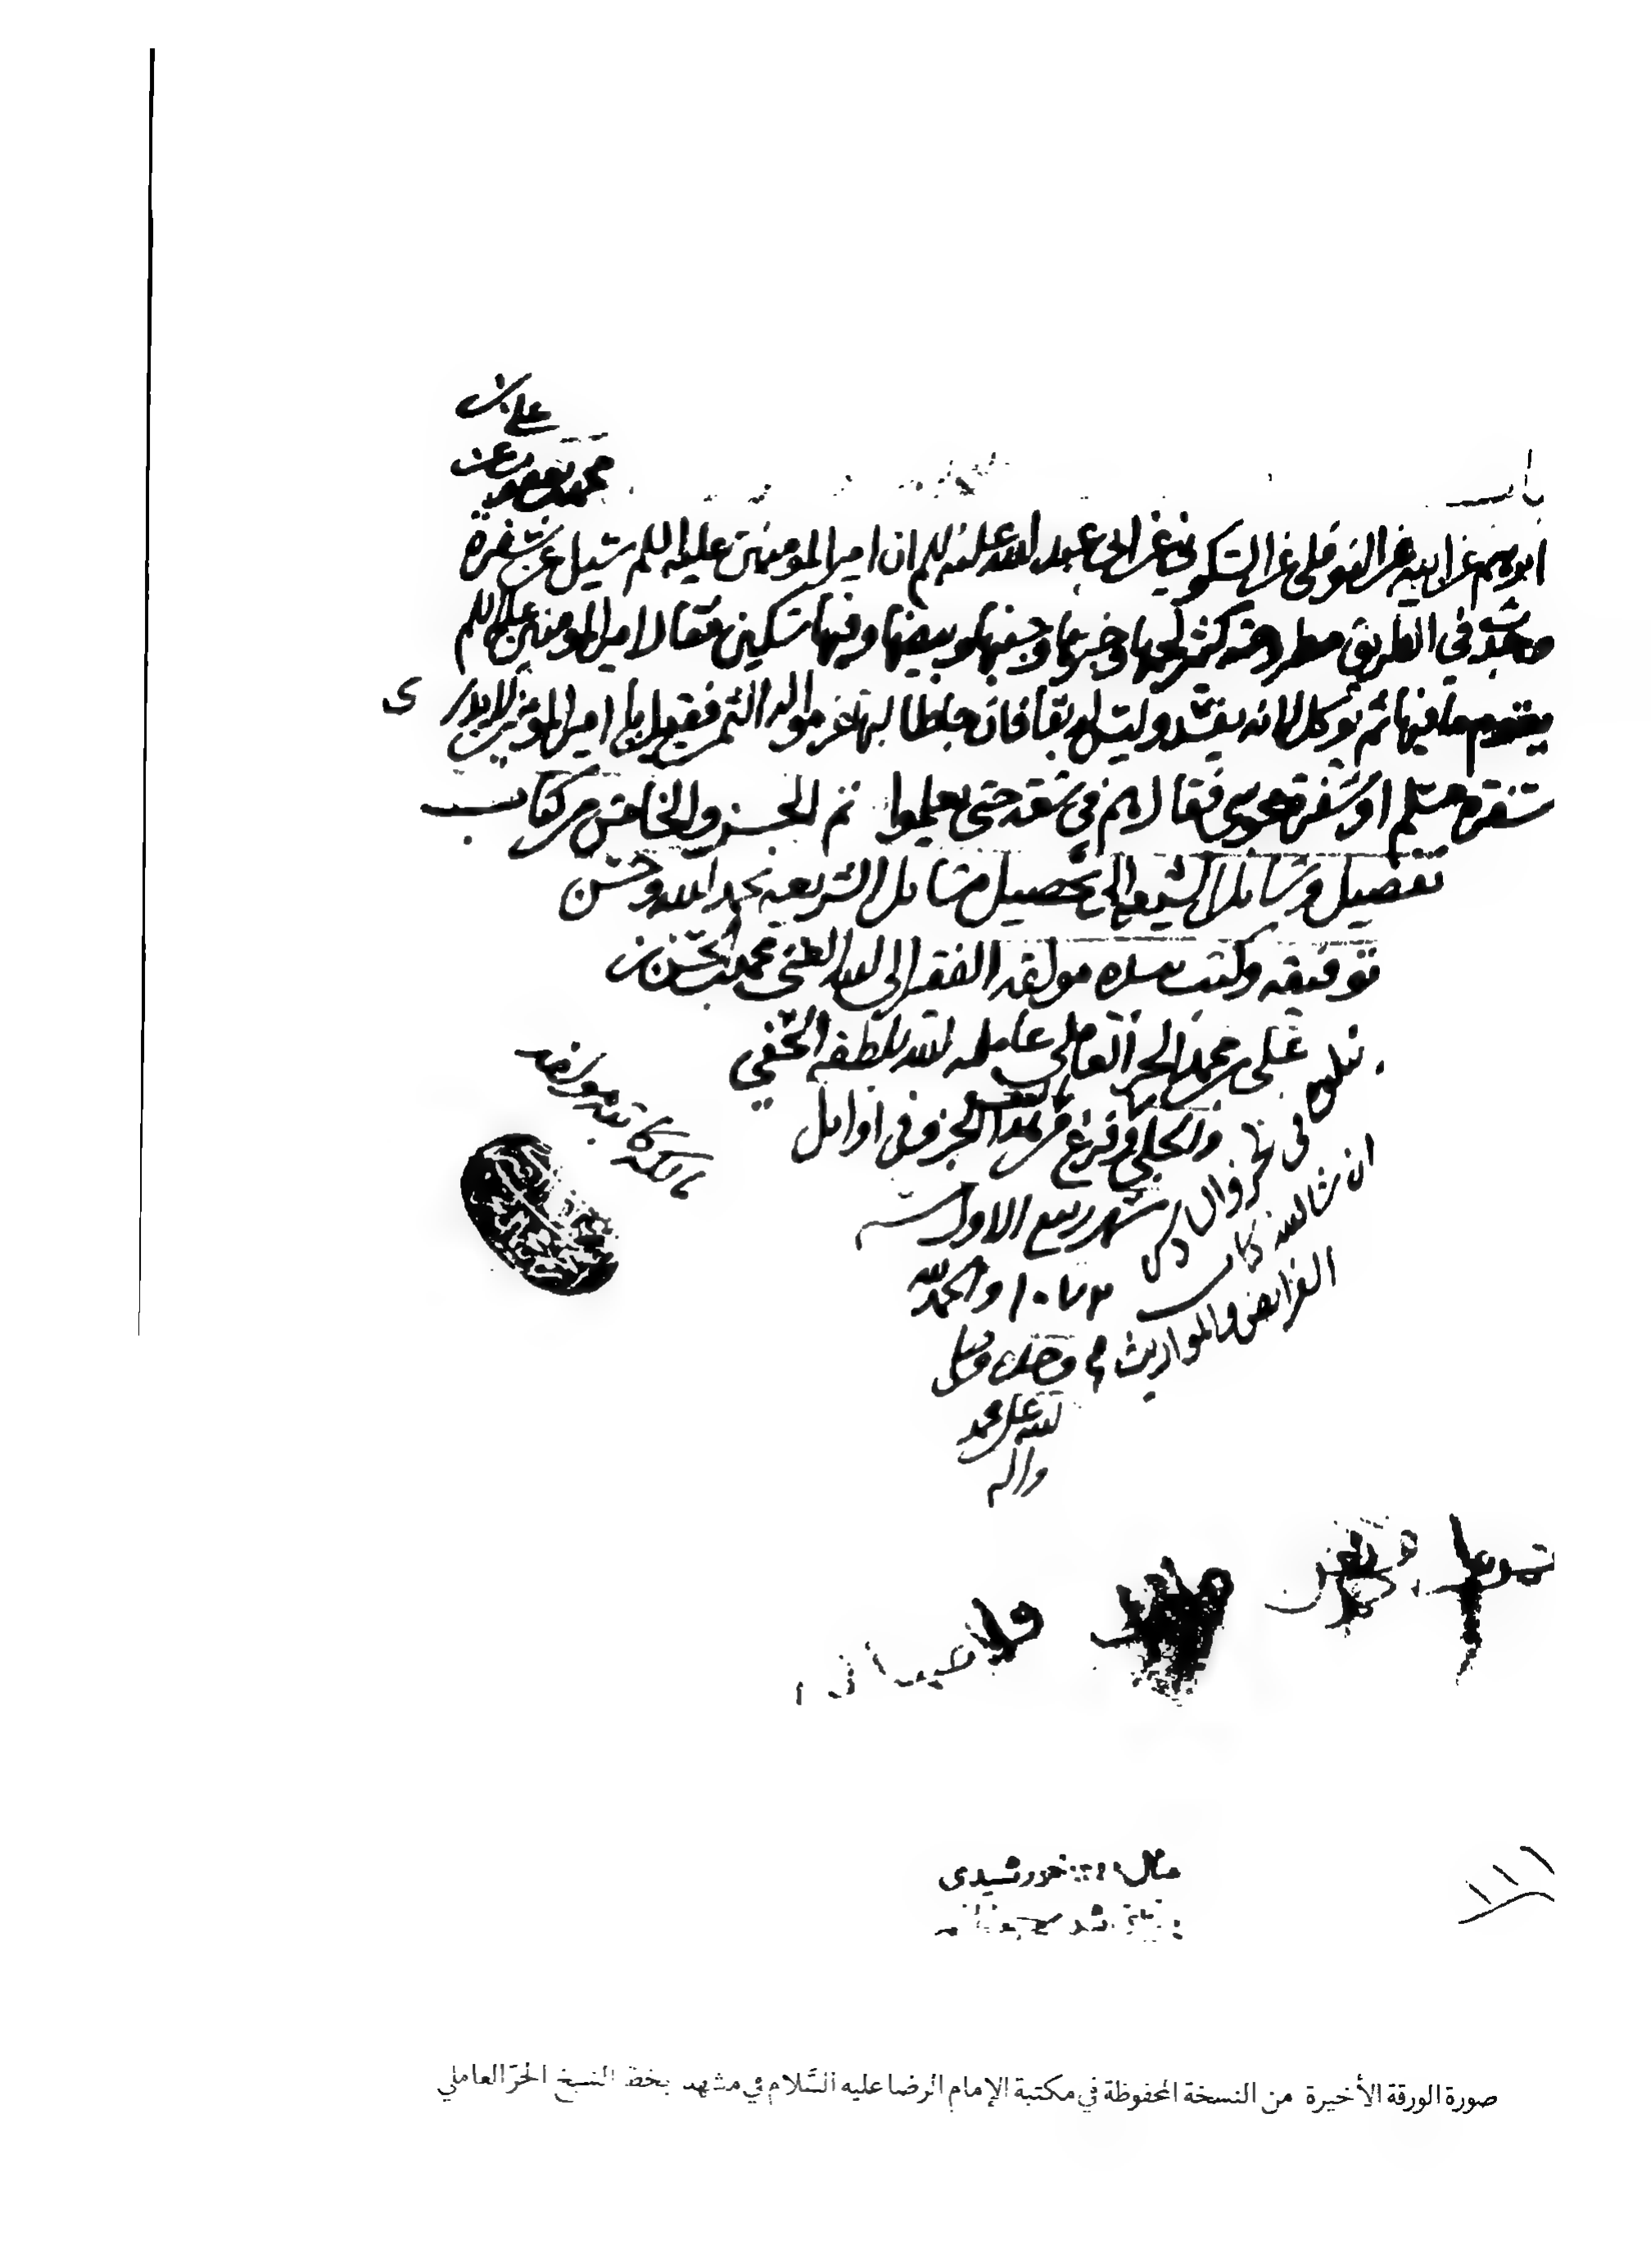 باب
محمد بن يعقوب عن
علي بن
ابرهيم عن ابيه عن النوفلي عن السكوني عن ابي عبد الله عليه السلم ان امير المومنين عليه السلم سئل عن سفرة
وجدت في الطريق مطروحة كثير لحمها وخبزها وجبنها وبيضها وفيها سكين فقال امير المومنين عليه السلم
يقوم ما فيها ثم يوكل لانه يفسد وليس له بقا فان جا طالبها غرموا له الثمن فقيل يا امير المومنين لا يدرى
سفرة مسلم او سفرة مجوسى فقال هم في سعة حتى يعلموا تم الجزو الخامس من كتاب
تفصيل وسائل الشيعة الى تحصيل مسائل الشريعة بحمد الله وحسن
توفيقه وكتب بيده مولفه الفقير الى الله الغني محمد بن الحسن بن
علي بن محمد الحر العاملي عامله الله بلطفه الخفي
والجلي وفرغ من هذا الجزو في اوايل
شهر ربيع الاول سنة
١٠٧٣ والحمد لله
وحده وصلى
الله على محمد
واله
يتلوه
في
ان شا الله كتاب
الفرايض والمواريث
مالكه كاتبه مولفه
صورة الورقة الأخيرة من النسخة المحفوظة في مكتبة الإمام الرضا عليه السَّلام في مشهد بخط الشيخ الحرّ العاملي